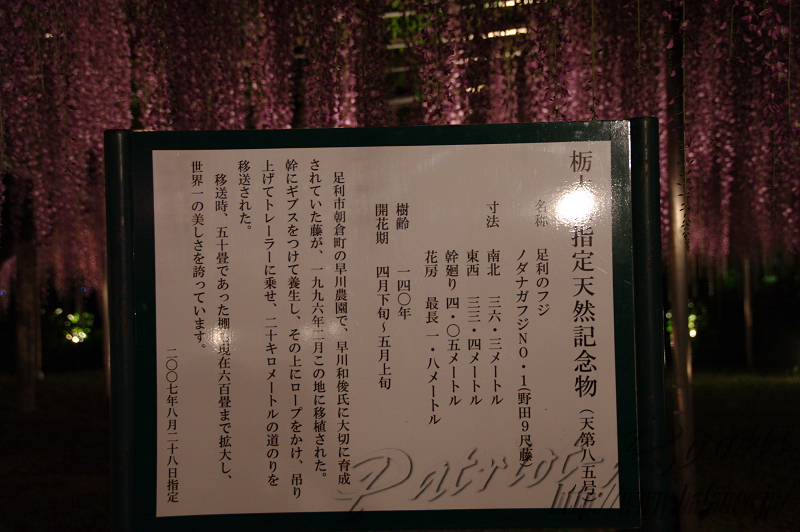 栃 指定天然記念物（天第八五号）
名称　足利のフジ
ノダナガフジNO・1(野田9尺藤)
寸法　南北　三六・三メートル
東西　三三・四メートル
幹廻り　四・〇五メートル
花房　最長　一・八メートル
樹齢　一四〇年
開花期　四月下旬～五月上旬
足利市朝倉町の早川農園で、早川和俊氏に大切に育成
されていた藤が、一九九六年二月この地に移植された。
幹にギブスをつけて養生し、その上にロープをかけ、吊り
上げてトレーラーに乗せ、二十キロメートルの道のりを
移送された。
移送時、五十畳であった棚 現在六百畳まで拡大し、
世界一の美しさを誇っています。
二〇〇七年八月二十八日指定
Patriot